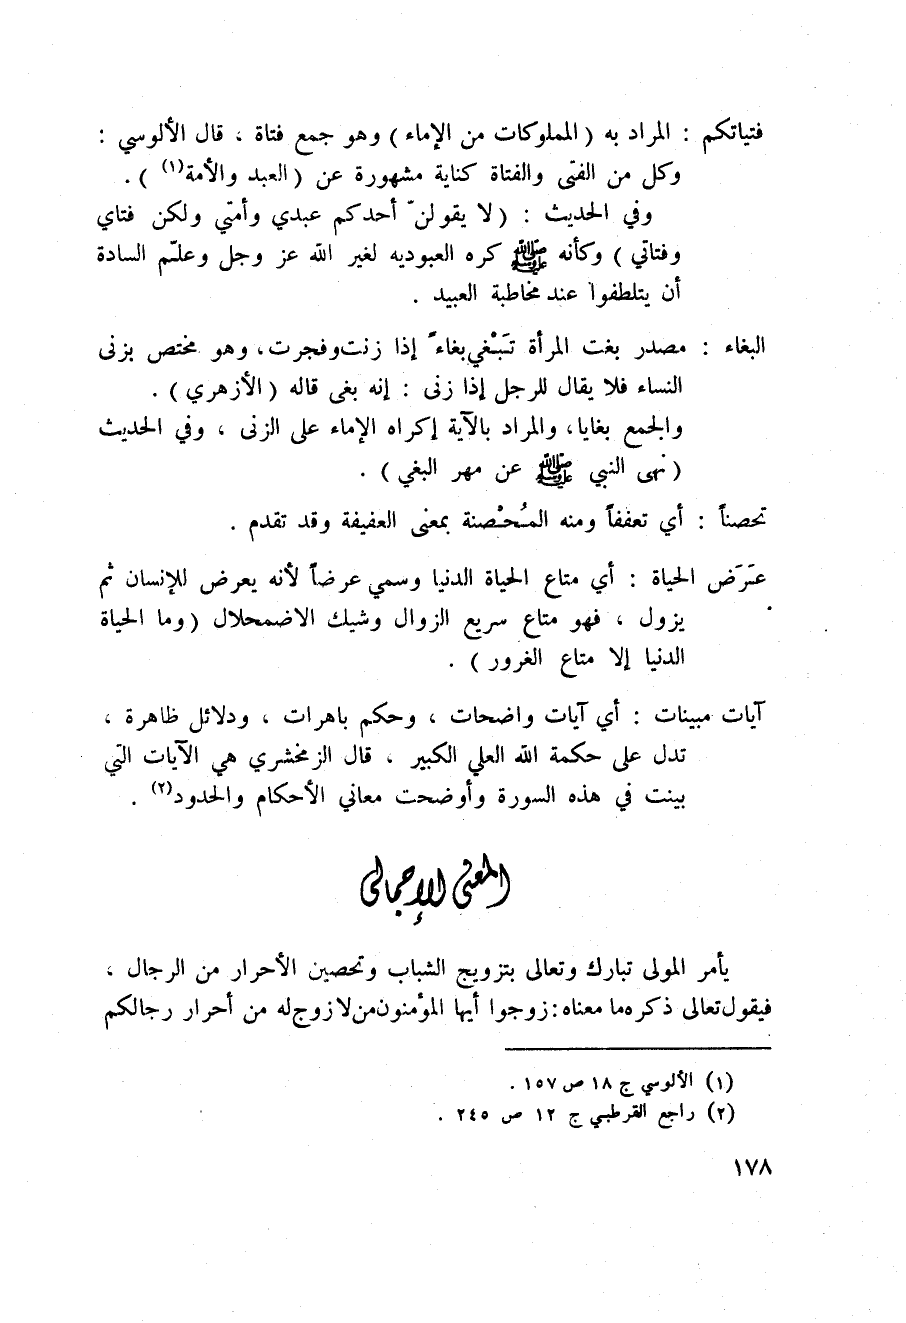 فتياتكم : المراد به ( المملوكات من الإماء ) وهو جمع فتاة ، قال الألوسي :
وكل من الفتى والفتاة كناية مشهورة عن ( العبد والأمة(١) ) .
وفي الحديث : ( لا يقولنّ أحدكم عبدي وأمتي ولكن فتاي
وفتاتي ) وكأنه ﷺ كره العبوديه لغير الله عز وجل وعلّم السادة
أن يتلطفوا عند مخاطبة العبيد .
البغاء : مصدر بغت المرأة تَبْغي بغاءً إذا زنت وفجرت ، وهو مختص بزنى
النساء فلا يقال للرجل إذا زنى : إنه بغى قاله ( الأزهري ) .
والجمع بغايا، والمراد بالآية إكراه الإماء على الزنى ، وفي الحديث
( نهى النبي ﷺ عن مهر البغي ) .
تحصناً : أي تعففاً ومنه المُحْصنة بمعنى العفيفة وقد تقدم .
عَرَض الحياة : أي متاع الحياة الدنيا وسمي عرضاً لأنه يعرض للإنسان ثم
يزول ، فهو متاع سريع الزوال وشيك الاضمحلال ( وما الحياة
الدنيا إلا متاع الغرور ) .
آيات مبينات : أي آيات واضحات ، وحكم باهرات ، ودلائل ظاهرة ،
تدل على حكمة الله العلي الكبير ، قال الزمخشري هي الآيات التي
بينت في هذه السورة وأوضحت معاني الأحكام والحدود(٢) .
المعنى الإجمالي
يأمر المولى تبارك وتعالى بتزويج الشباب وتحصين الأحرار من الرجال ،
فيقول تعالى ذكره ما معناه : زوجوا أيها المؤمنون من لا زوج له من أحرار رجالكم
(١) الألوسي ج ١٨ ص ١٥٧ .
(٢) راجع القرطبي ج ١٢ ص ٢٤٥ .
١٧٨